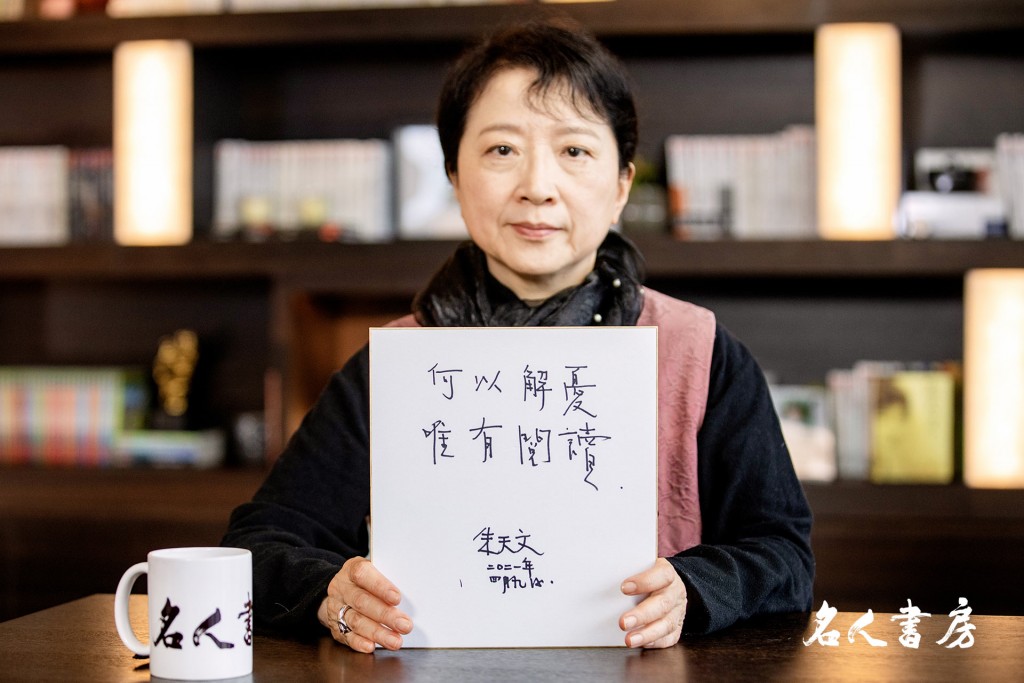 何以解憂
唯有閱讀.
朱天文
二〇二一年
四月九日.
名人書
名人書房